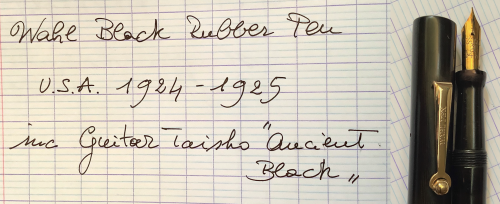 Wahl Black Rubber Pen
U.S.A. 1924-1925
inc Guitar Taisho "Ancient
Black"